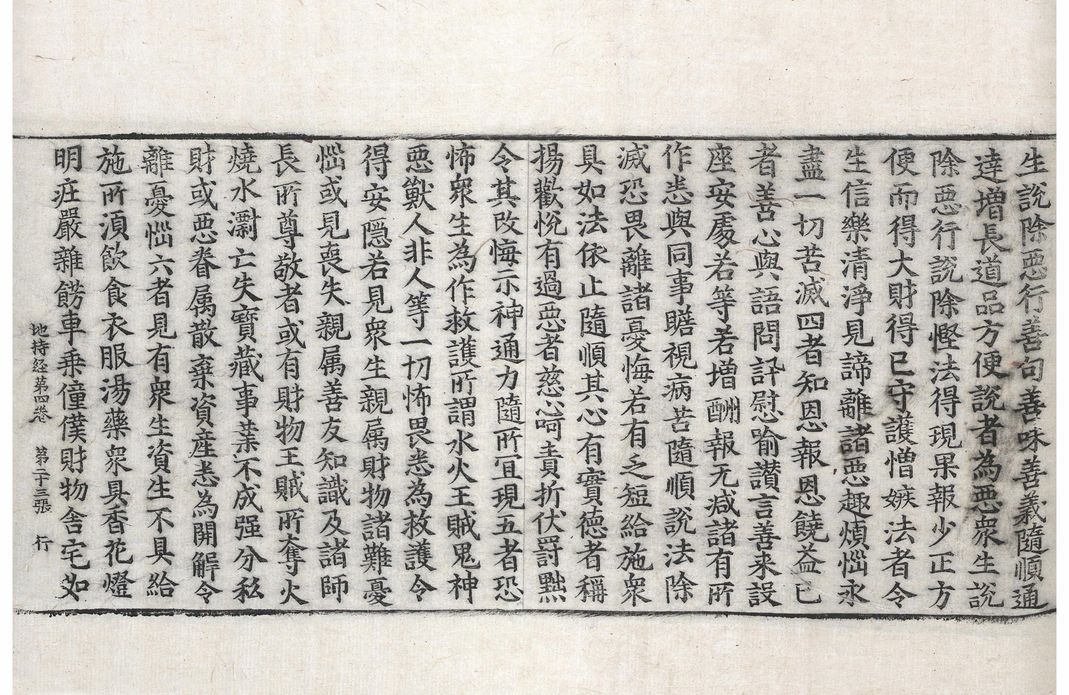 生說除惡行善句善味善義隨順通
達增長道品方便說者為惡衆生說
除惡行說除慳法得現果報少正方
便而得大財得已守護憎嫉法者令
生信樂清淨見諦離諸惡趣煩惱永
盡一切苦滅四者知恩報恩饒益已
者善心與語問訊慰喻讚言善來設
座安處若等若增酬報无減諸有所
作悉與同事瞻視病苦隨順說法除
滅恐畏離諸憂悔若有乏短給施衆
具如法依止隨順其心有實德者稱
揚歡悅有過惡者慈心呵責折伏罰黜
令其改悔示神通力隨所宜現五者恐
怖衆生為作救護所謂水火王賊鬼神
惡獸人非人等一切怖畏悉為救護令
得安隱若見衆生親属財物諸難憂
惱或見喪失親属善友知識及諸師
長所尊敬者或有財物王賊所奪火
燒水漂亡失寶藏事業不成强分私
財或惡眷属散棄資産悉為開解令
離憂惱六者見有衆生資生不具給
施所湏飲食衣服湯藥衆具香花燈
明疘嚴雜餝車乘僮僕財物舍宅如
地持経第四卷 第二十三張 行